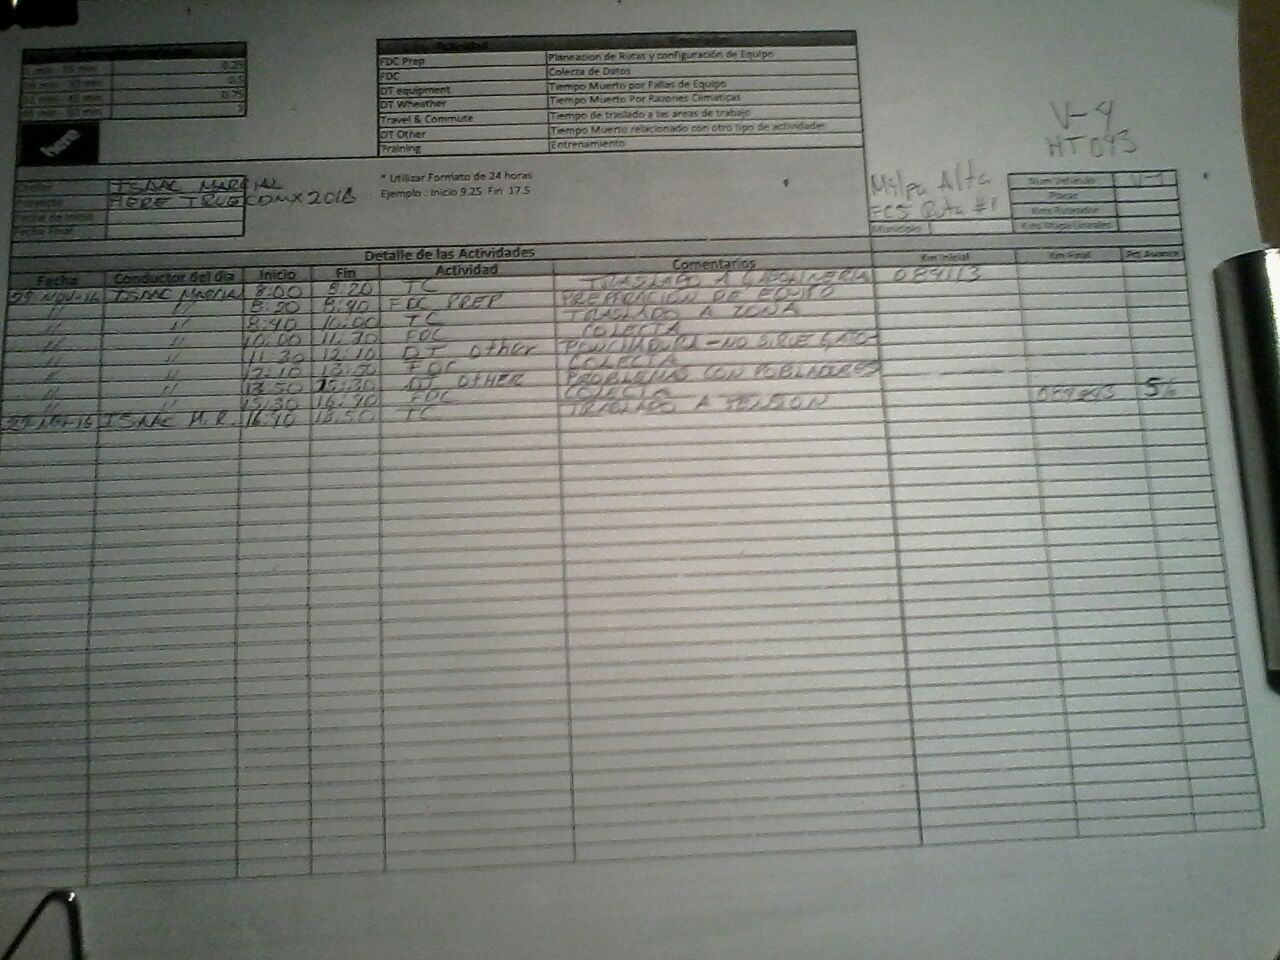 0.25
0.5
0.75
1
here
FDC Prep Planeacion de Rutas y configuración de Equipo
FDC Colecta de Datos
DT equipment Tiempo Muerto por Fallas de Equipo
DT Wheather Tiempo Muerto Por Razones Climaticas
Travel & Commute Tiempo de traslado a las areas de trabajo
DT Other Tiempo Muerto relacionado con otro tipo de actividades
Training Entrenamiento
V-4
HT 043
* Utilizar Formato de 24 horas
Ejemplo : Inicio 9.25 Fin 17.5
ISAAC MARCIAL
HERE TRUE CDMX 2016
Fecha de Inicio
Fecha Final
Milpa Alta
FCS Ruta #1
Municipio
Num Vehiculo
Placas
Detalle de las Actividades
Fecha Conductor del dia Inicio Fin Actividad Comentarios Km Inicial Km Final Pct Avance
29-NOV-16 ISAAC MARCIAL 8:00 8:20 TC TRASLADO A GASOLINERIA 084113
" " 8:20 8:40 FDC PREP PREPARACION DE EQUIPO
" " 8:40 10:00 TC TRASLADO A ZONA
" " 10:00 11:30 FDC COLECTA
" " 11:30 12:10 DT Other PONCHADURA - NO SIRVE GATO
" " 12:10 13:50 FDC COLECTA
" " 13:50 15:30 DT OTHER PROBLEMAS CON POBLADORES
" " 15:30 16:40 FDC COLECTA
29-NOV-16 ISAAC M.R. 16:40 18:50 TC TRASLADO A PENSION